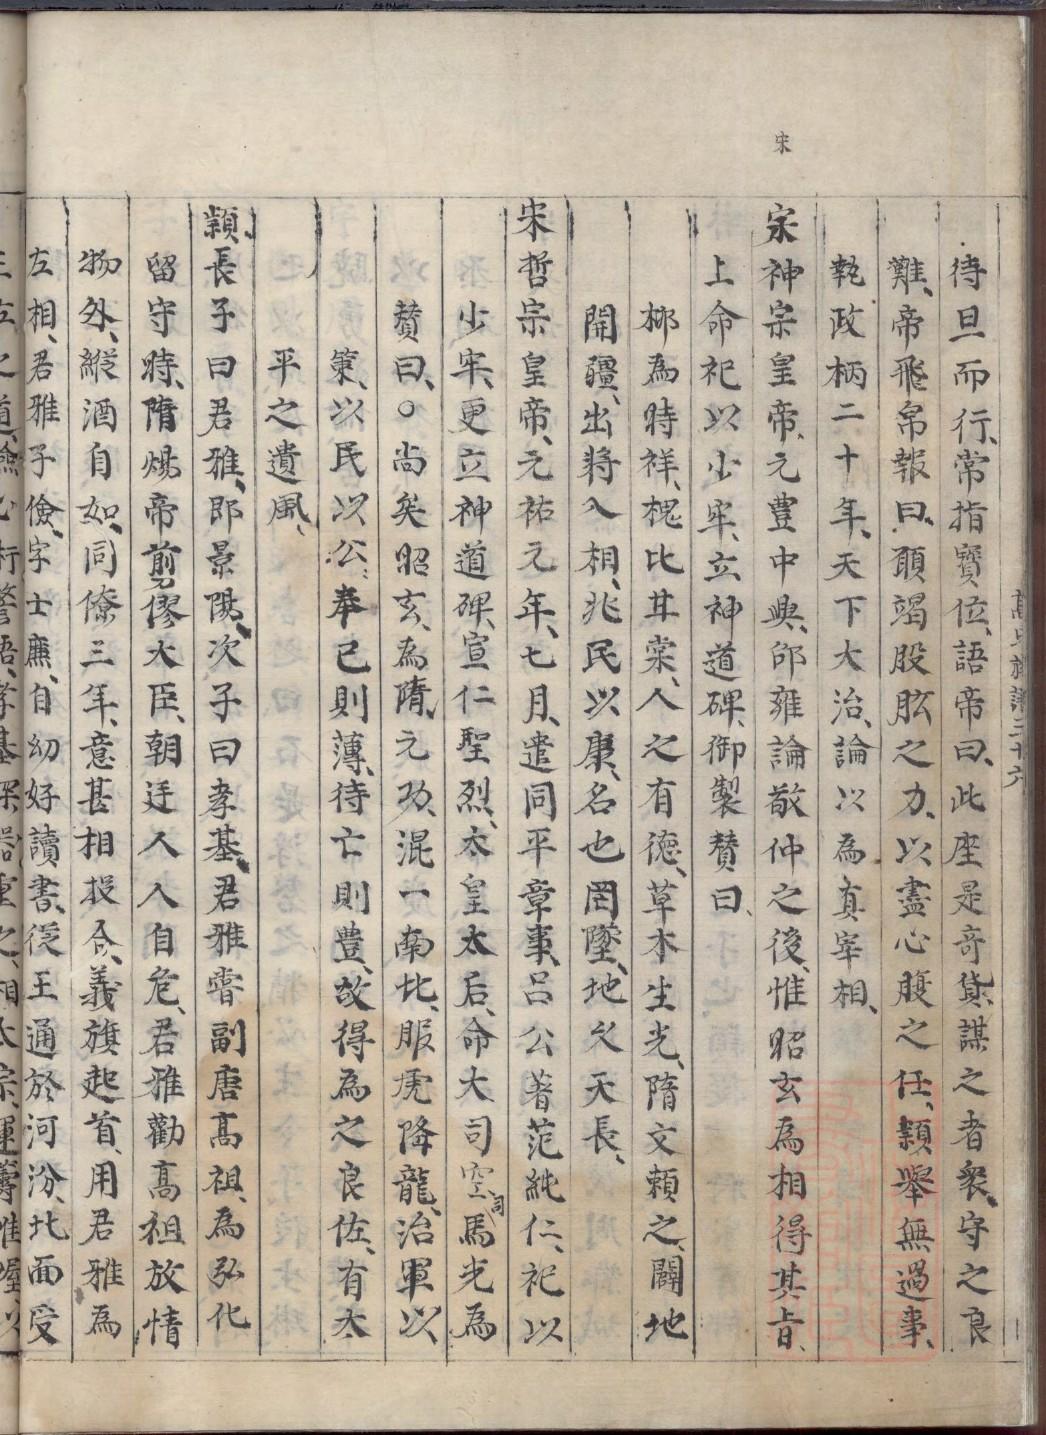 宋
高氏族譜三十六
待旦而行、常指寶位、語帝曰、此座是奇貨、謀之者衆、守之良
難、帝飛帛報曰、頋竭股肱之力、以盡心腹之任、頴舉無過事、
執政柄二十年、天下大治、論以為真宰相、
宋神宗皇帝、元豊中興、邵雍論敬仲之後、惟昭玄為相得其旨、
上命祀以少牢、立神道碑、御製賛曰、
梛為時祥、槐比其棠、人之有德、草木生光、隋文頼之、闢地
開疆、出將入相、兆民以康、名也罔墜、地久天長、
宋哲宗皇帝、元祐元年、七月、遣同平章事、呂公著范純仁、祀以
少牢、更立神道碑、宣仁聖烈、太皇太后、命大司空司馬光為
賛曰、○尚矣昭玄、為隋元功、混一南北、服虎降龍、治軍以
筞、以民以公、奉已則薄、待亡則豊、故得為之良佐、有太
平之遺風、
頴長子曰君雅、郎景陽、次子曰孝基、君雅甞副唐高祖、為弘化
留守時、隋煬帝剪僇大臣、朝廷人人自危、君雅勸高祖放情
物外、縱酒自如、同僚三年、意甚相投合、義旗起首、用君雅為
左相、君雅子儉、字士廉、自幼好讀書、從王通於河汾、北面受